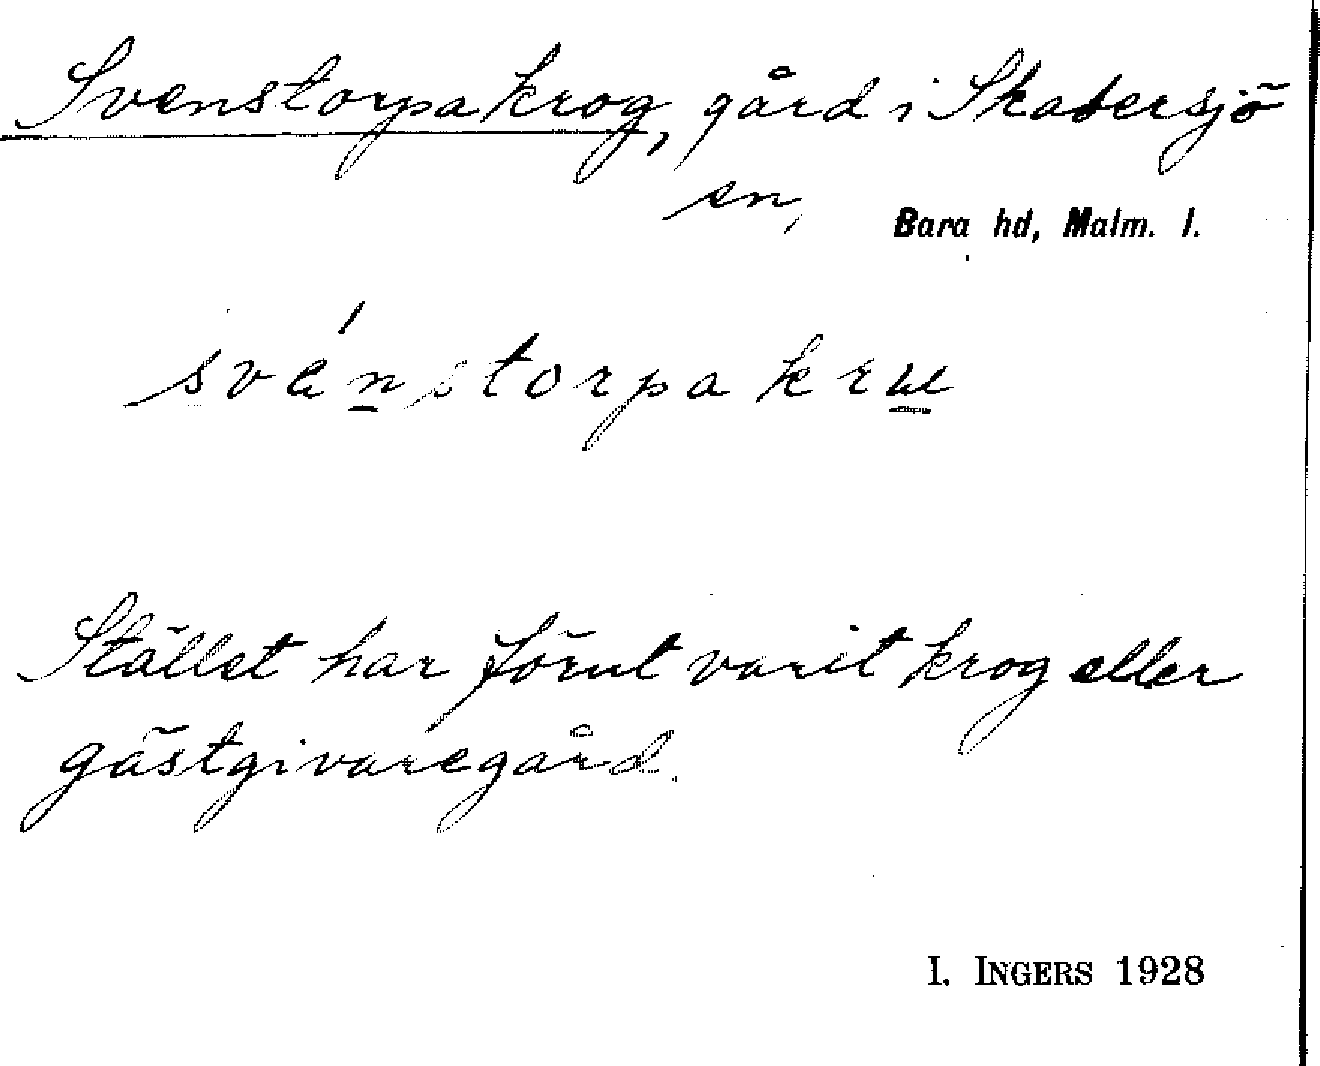 Svenstorpakrog, gård i Skabersjö
sn,
Bara hd, Malm. l.
svänstorpa kru
Stället har förut varit krog eller
gästgivaregård.
I. INGERS 1928